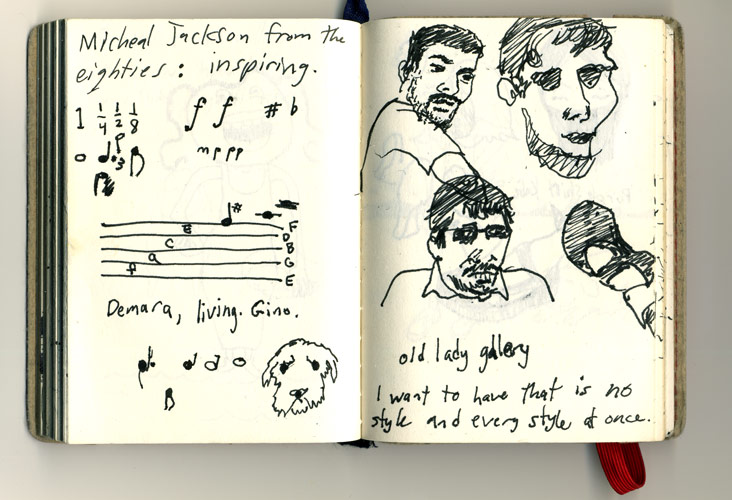 Micheal Jackson from the
eighties: inspiring.
1 1/4 1/2 1/8
f f # b
mp pp
#
F
e D
c B
a G
f E
Demara, living. Gino.
old lady gallery
I want to have that is no
style and every style at once.